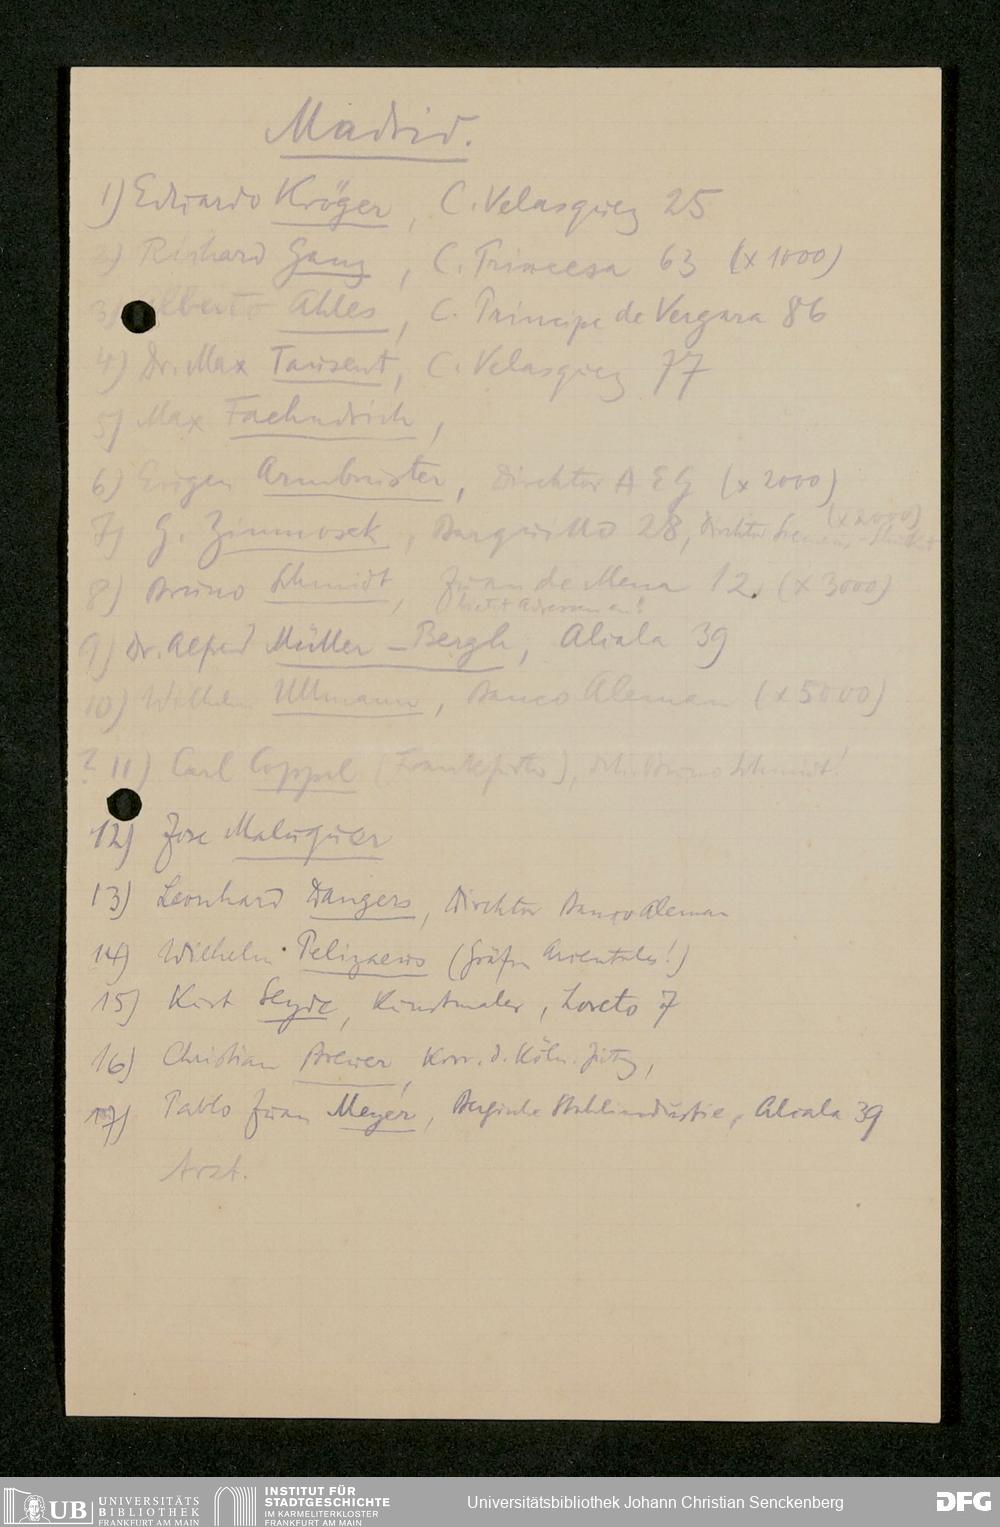 Madrid.
1) Eduardo Kröger, C. Velasquez 25
2) Richard Ganz, C. Princesa 63 (x 1000)
3) Alberto Ahles, C. Principe de Vergara 86
4) Dr. Max Tausent, C. Velasquez 77
5) Max Faehndrich,
6) Eugen Armbruster, Direktor AEG (x 2000)
(x 2000)
7) G. Zimmosek, Barquillo 28, Direktor Siemens-Schuckert
8) Bruno Schmidt, Juan de Mena 12, (x 3000)
bietet Adressen an!
9) Dr. Alfred Müller-Bergh, Alcala 39
10) Wilhelm Ullmann, Banco Aleman (x 5000)
? 11) Carl Coppel (Frankfurter), Bruno Schmidt!
12) Jose Maluquer
13) Leonhard Dangers, Direktor Banco Aleman
14) Wilhelm Pelizaeus (Orientales!)
15) Kurt Leyde, Kunstmaler, Loreto 7
16) Christian Brewer, Korr. d. Köln. Ztg,
17) Pablo Juan Meyer, Bergische Stahlindustrie, Alcala 39
Arzt.
UB UNIVERSITÄTS
BIBLIOTHEK
FRANKFURT AM MAIN
INSTITUT FÜR
STADTGESCHICHTE
IM KARMELITERKLOSTER
FRANKFURT AM MAIN
Universitätsbibliothek Johann Christian Senckenberg
DFG